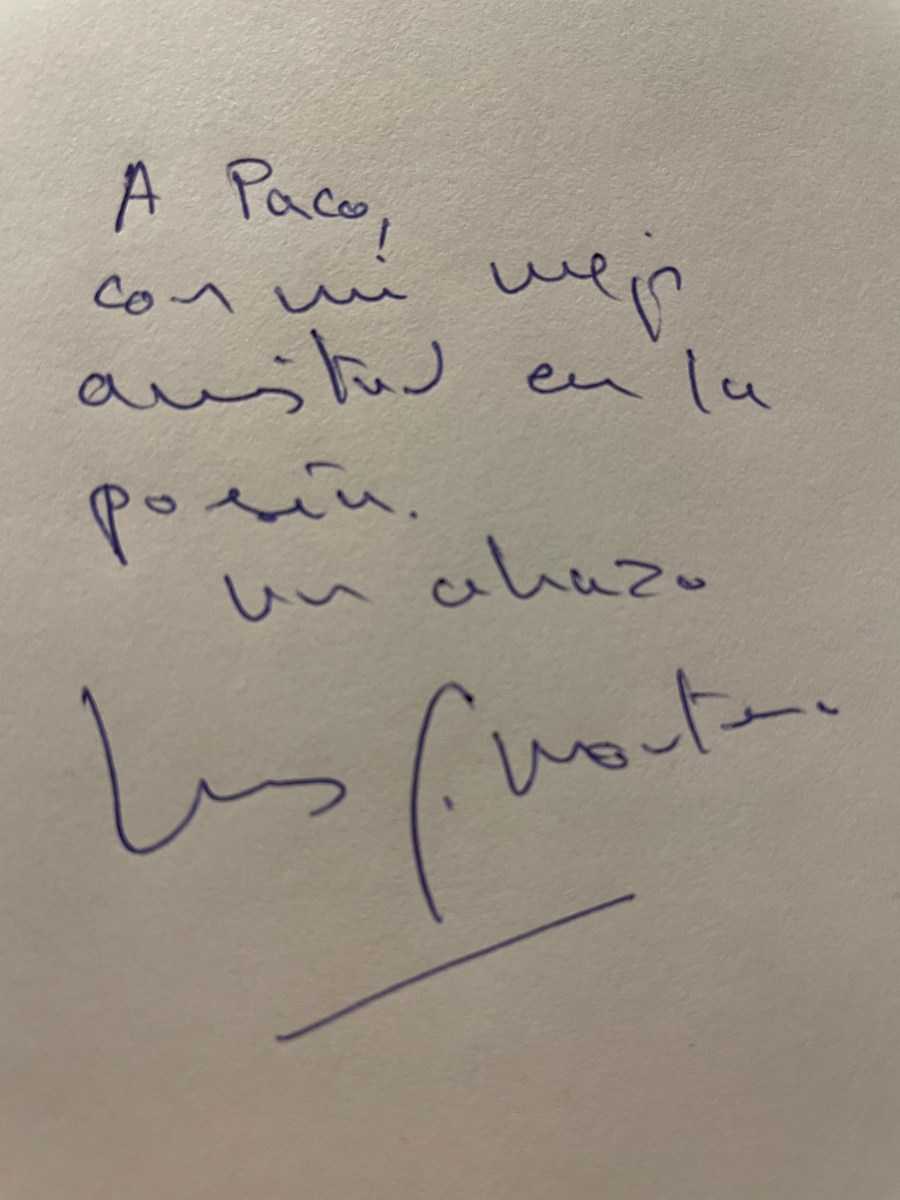 A Paco,
con mi mejor
amistad en la
poesía.
un abrazo
Luis G. Montero